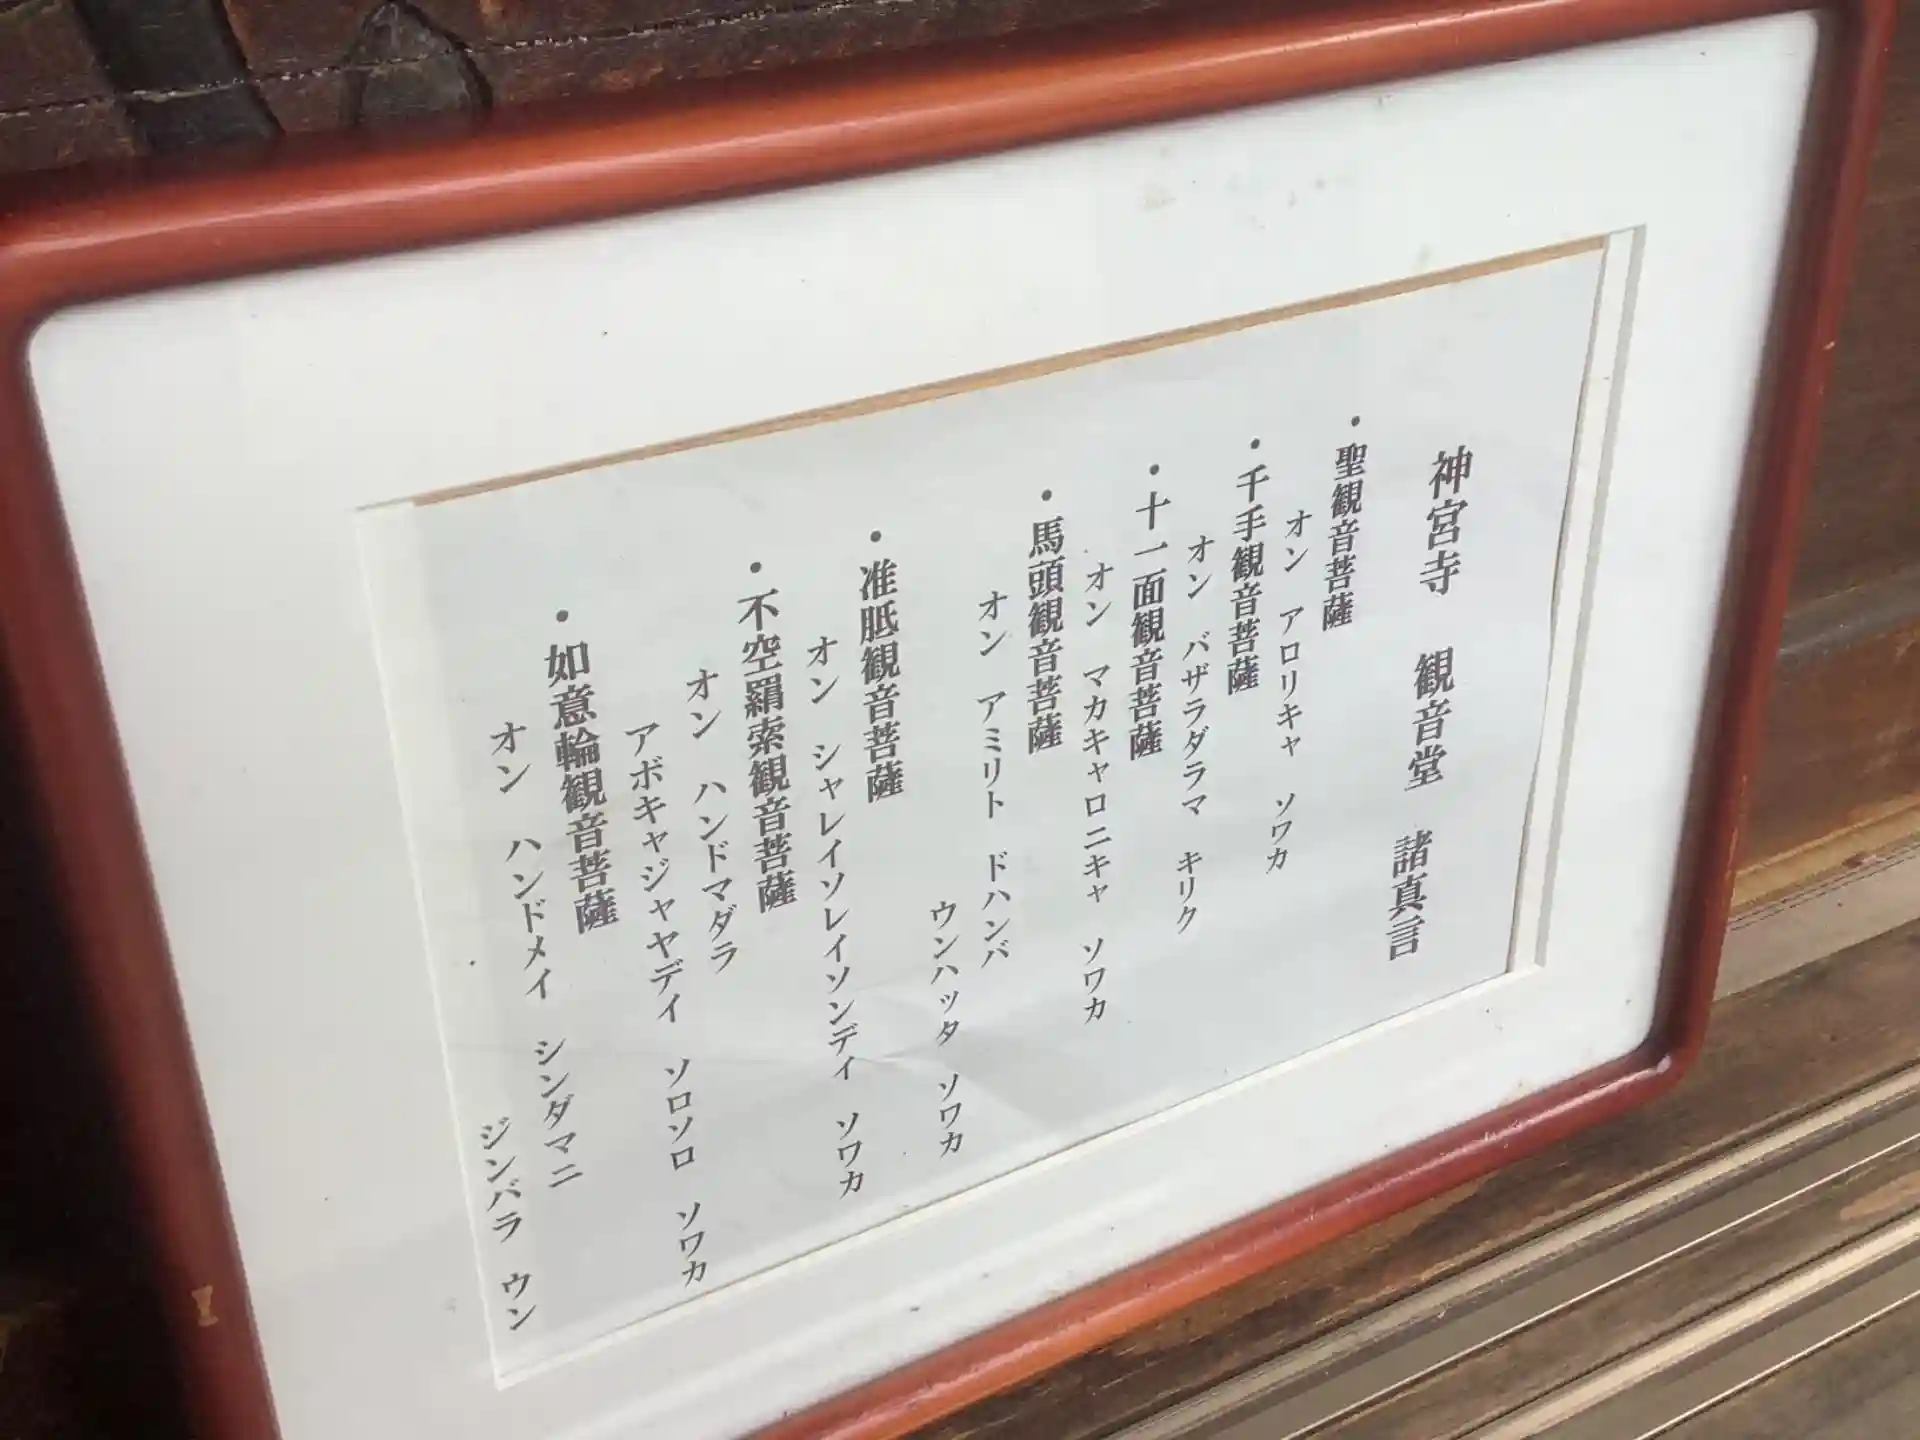 神宮寺　観音堂　諸真言
・聖観音菩薩
オン　アロリキャ　ソワカ
・千手観音菩薩
オン　バザラダラマ　キリク
・十一面観音菩薩
オン　マカキャロニキャ　ソワカ
・馬頭観音菩薩
オン　アミリト　ドハンバ
ウンハッタ　ソワカ
・准胝観音菩薩
オン　シャレイソレイソンデイ　ソワカ
・不空羂索観音菩薩
オン　ハンドマダラ
アボキャジャヤデイ　ソロソロ　ソワカ
・如意輪観音菩薩
オン　ハンドメイ　シンダマニ
ジンバラ　ウン